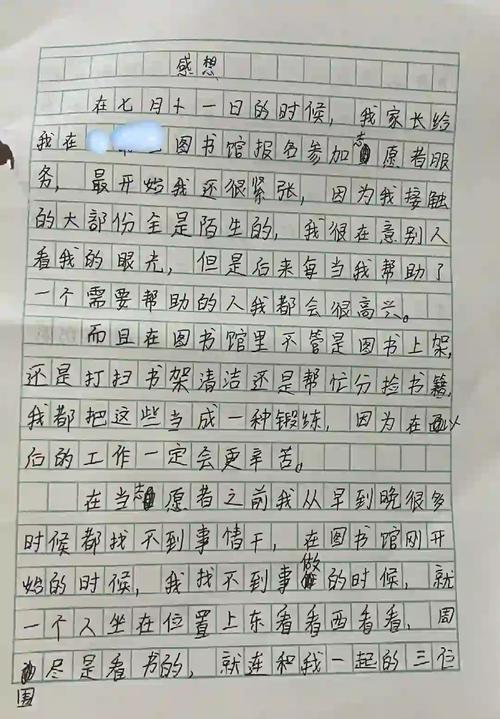 感想
在七月十一日的时候，我家长给
我在图书馆报名参加志愿者服
务，最开始我还很紧张，因为我接触
的大部份全是陌生的，我很在意别人
看我的眼光，但是后来每当我帮助了
一个需要帮助的人我都会很高兴。
而且在图书馆里不管是图书上架，
还是打扫书架清洁还是帮忙分捡书籍，
我都把这些当成一种锻炼，因为在以
后的工作一定会更辛苦。
在当志愿者之前我从早到晚很多
时候都找不到事情干，在图书馆刚开
始的时候，我找不到事做的时候，就
一个人坐在位置上东看看西看看，周
围尽是看书的，就连和我一起的三位